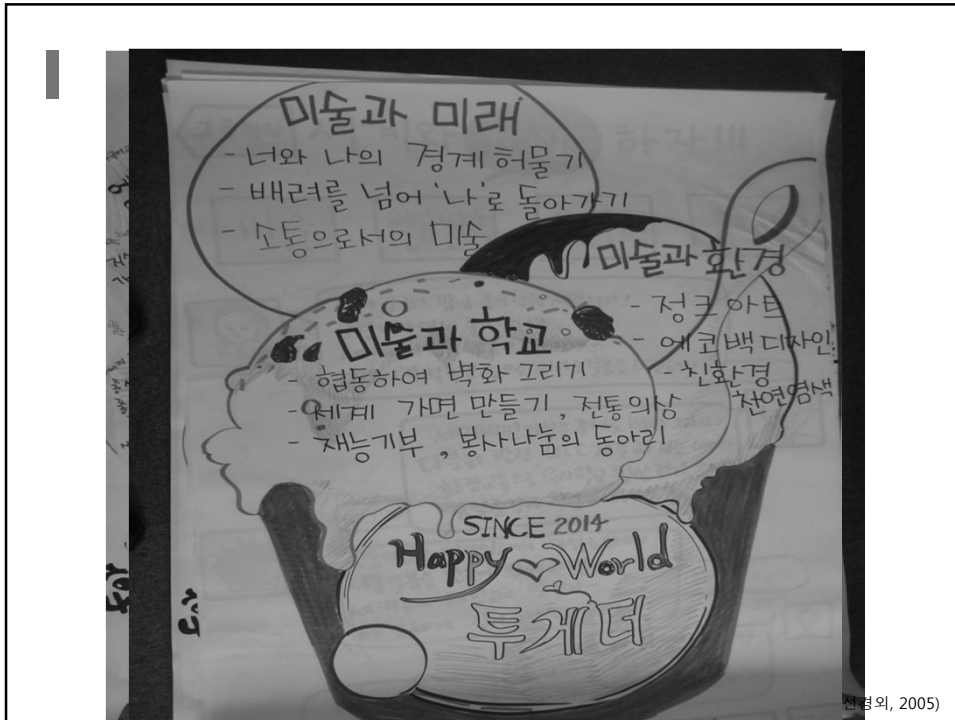 미술과 미래
- 너와 나의 경계허물기
- 배려를 넘어 '나'로 돌아가기
- 소통으로서의 미술
미술과 환경
- 정크아트
- 에코백디자인
- 친환경
천연염색
미술과 학교
- 협동하여 벽화 그리기
- 세계 가면 만들기, 전통의상
- 재능기부, 봉사나눔의 동아리
SINCE 2014
Happy World
투게더
선경외, 2005)